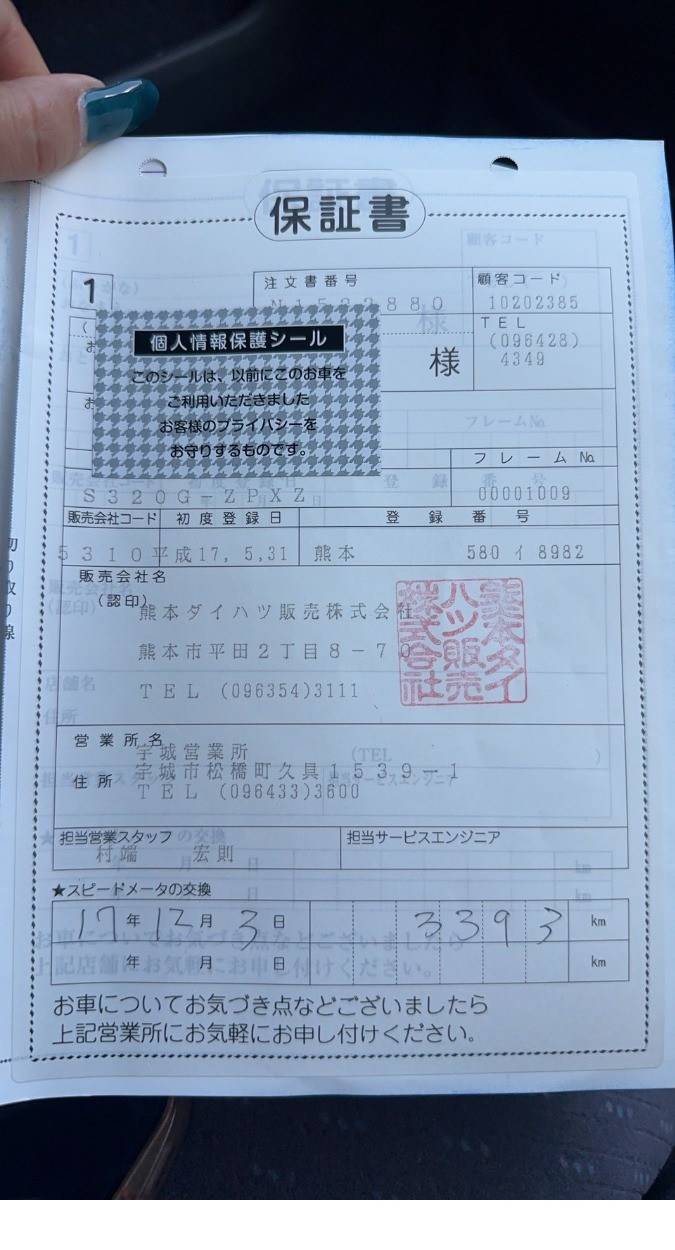 保証書
1
注文書番号
N1522880
顧客コード
10202385
TEL
(096428)
4349
様
個人情報保護シール
このシールは、以前にこのお車を
ご利用いただきました
お客様のプライバシーを
お守りするものです。
フレームNo.
S320G ZPXZ
00001009
販売会社コード 初度登録日 登録番号
5310 平成17, 5,31 熊本 580 イ 8982
販売会社名
(認印)
熊本ダイハツ販売株式会社
熊本市平田2丁目8-70
TEL (096354)3111
熊本ダイ
ハツ販売
株式会社
営業所名
宇城営業所
住所
宇城市松橋町久具1539-1
TEL (096433)3600
担当営業スタッフ 担当サービスエンジニア
村端 宏則
★スピードメータの交換
17年12月3日 3393 km
年 月 日 km
お車についてお気づき点などございましたら
上記営業所にお気軽にお申し付けください。